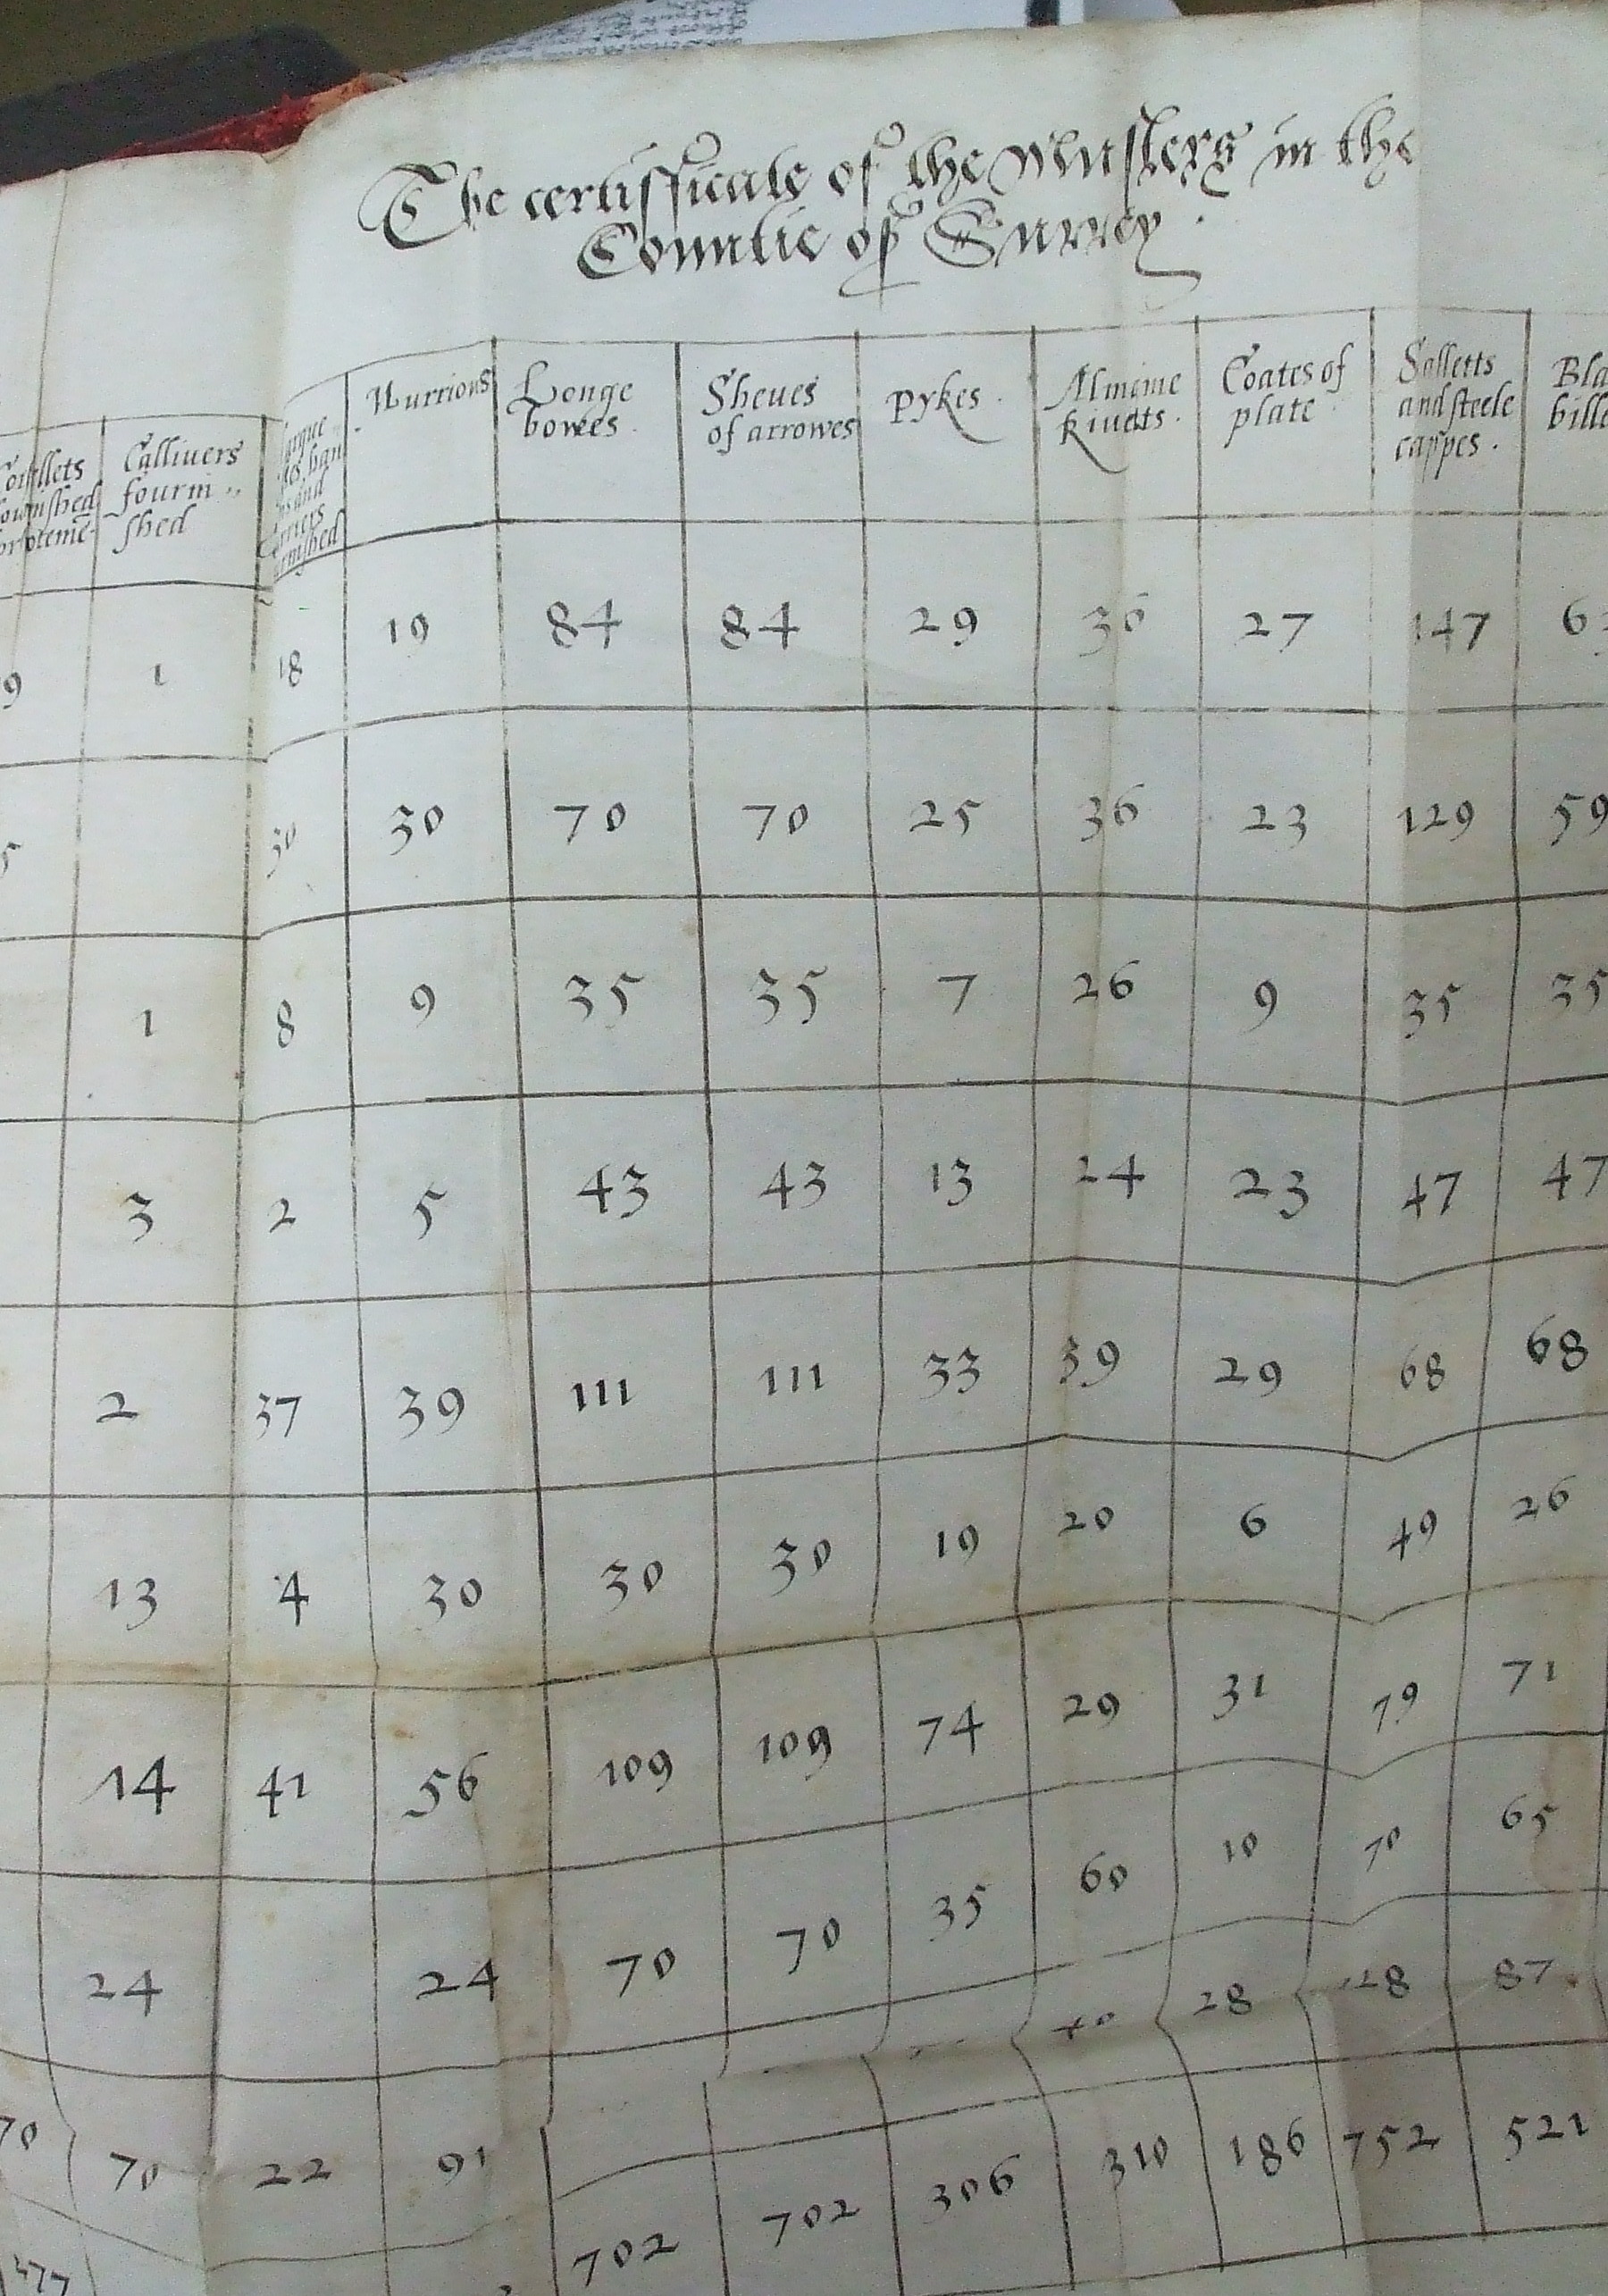 The certifficate of the Musters in the
Countie of Surrey.
Calliuers
fourni
shed
Murrions
Longe
bowes.
Sheues
of arrowes
pykes.
Almeine
Riuetts.
Coates of
plate
Salletts
and steele
cappes.
1 18 19 84 84 29 36 27 147
30 30 70 70 25 36 23 129 59
1 8 9 35 35 7 26 9 35 35
3 2 5 43 43 13 24 23 47 47
2 37 39 111 111 33 39 29 68 68
13 4 30 30 30 19 20 6 49 26
14 41 56 109 109 74 29 31 79 71
24 24 70 70 35 60 10 70 65
70 70 22 91 28 87
702 702 306 310 186 752 521